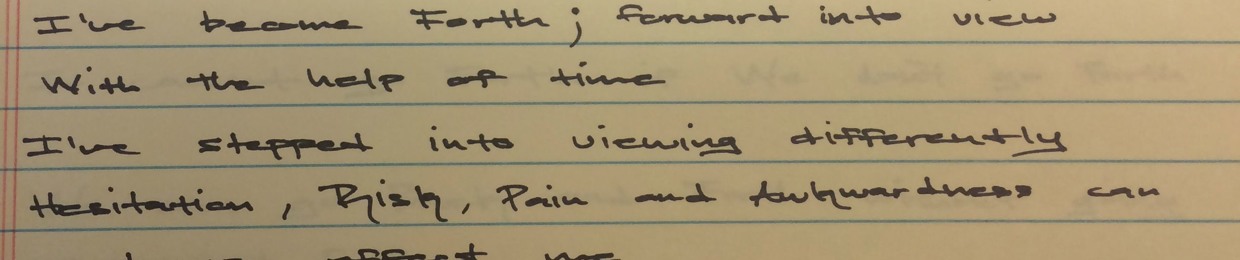 I've become Forth; forward into view
With the help of time
I've stepped into viewing differently
Hesitation, Risk, Pain and Awkwardness can
affect me